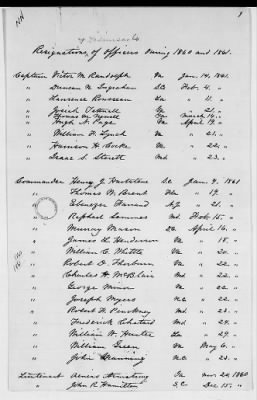 1
Resignations of Officers during 1860 and 1861.
Captain Victor M. Randolph Jan. 14, 1861.
" Duncan N. Ingraham S.C. Feb. 4. "
" Lawrence Rousseau La " 11. "
" Josiah Tattnall " 21. "
" Thomas March 16. "
" Hugh N. Page Va April 19. "
" William F. Lynch Va " 21. "
" Harrison H. Cocke Va " 22. "
" Isaac S. Sterett Md. " 23. "
Commander Henry J. Hartstene S.C Jan. 9. 1861
" Thomas W. Brent Fla " 19. "
" Ebenezer Farrand N.J " 21. "
" Raphael Semmes Md. Feb. 15. "
" Murray Mason Va April 16. "
" James L. Henderson Va " 18. "
" William C. Whittle Va " 20. "
" Robert D. Thorburn Va " 22. "
" Charles H. McBlair Md. " 22. "
" George Minor Va " 22. "
" Joseph Myers N.C " 22. "
" Robert F. Pinkney Md. " 23. "
" Frederick Chatard Md " 24. "
" William W. Hunter La " 29. "
" William Green Va May 6. "
" John Manning N.C " 23. "
Lieutenant Aeneas Armstrong Nov. 24, 1860
" John R. Hamilton S.C Dec. 15. "